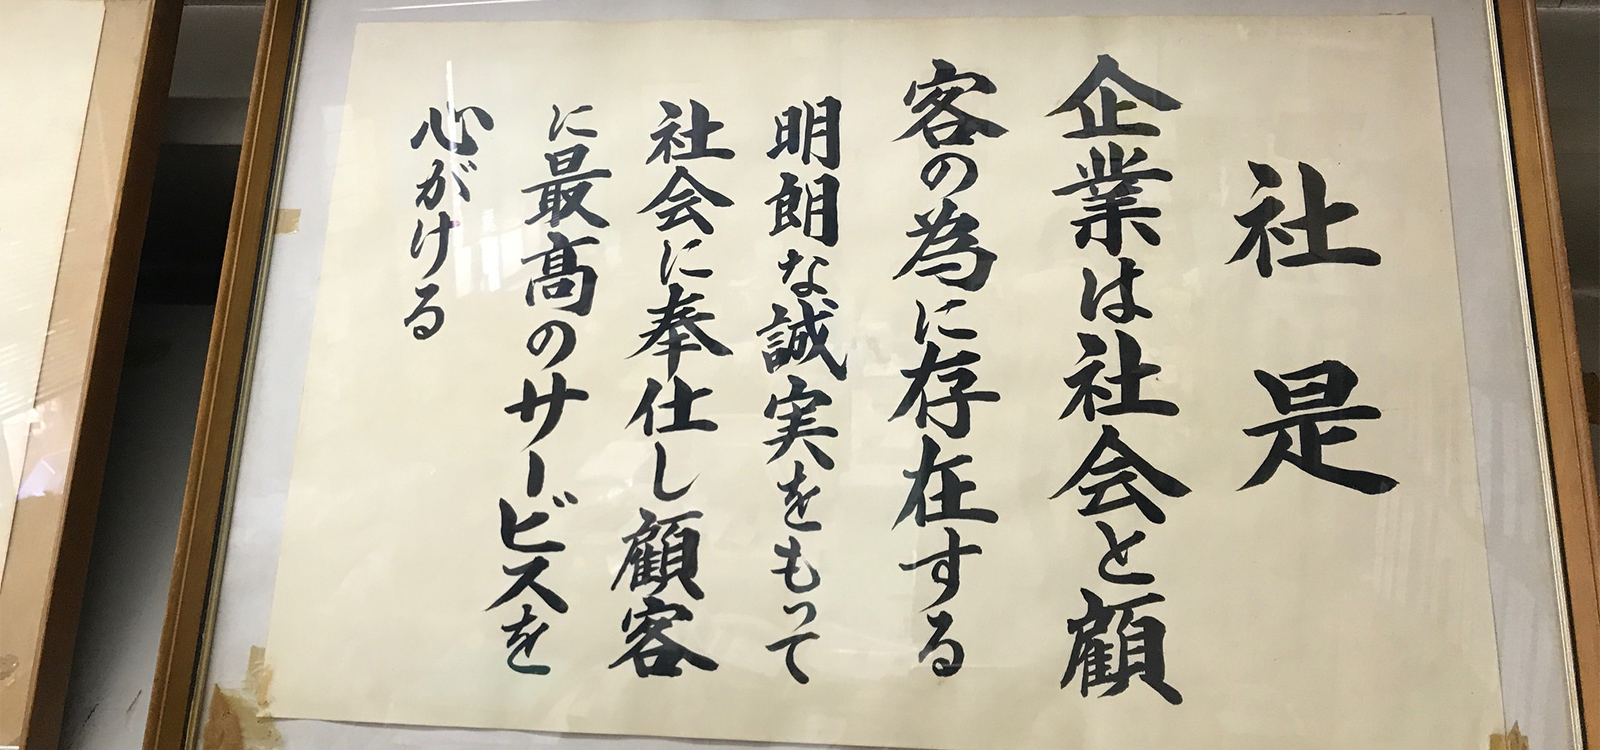 社是
企業は社会と顧
客の為に存在する
明朗な誠実をもって
社会に奉仕し顧客
に最高のサービスを
心がける